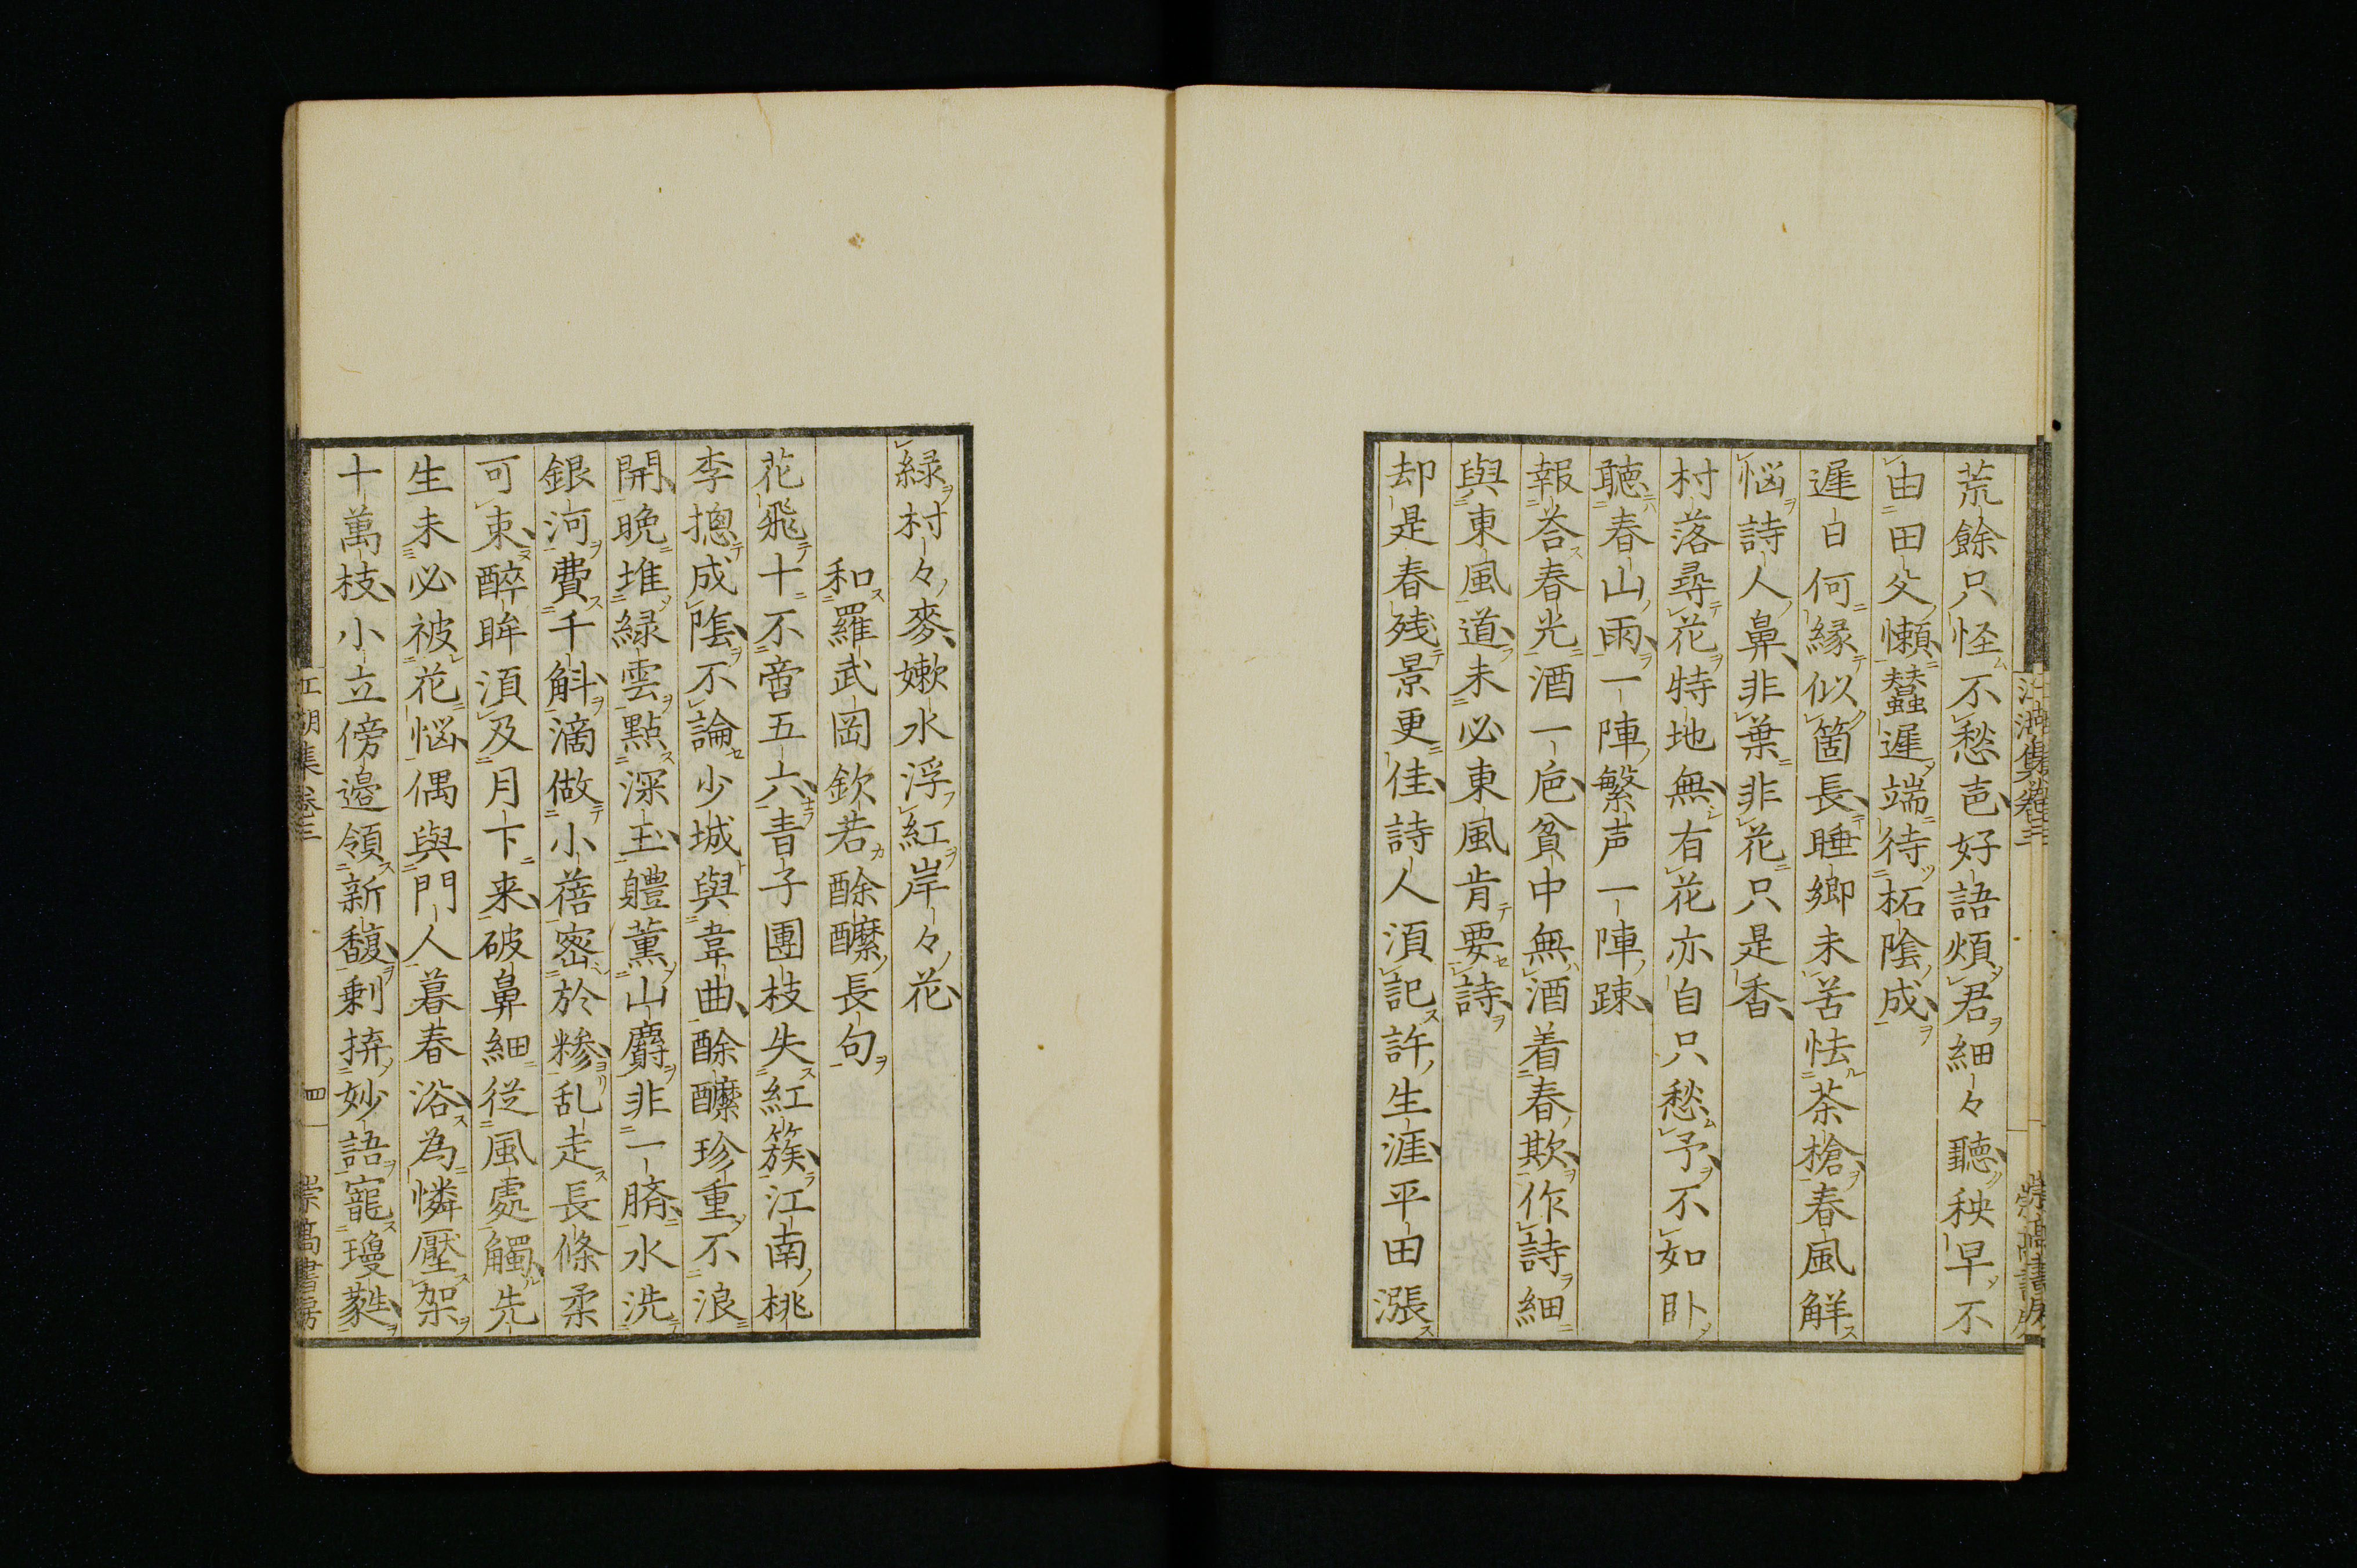 荒餘只怪不愁芭好語煩君細々聽秧早不
由田父懶蠶遲端待柘陰成
遲日何縁似箇長睡鄉未苦怯茶槍春風解
悩詩人鼻非葉非花只是香
村落尋花特地無有花亦自只愁予不如卧
聴春山雨一陣繁声一陣踈
報荅春光酒一巵貧中無酒着春欺作詩細
與東風道未必東風肯要詩
却是春残景更佳詩人須記許生涯平田漲
緑村々麥嫰水浮紅岸々花
和羅武岡欽若酴醿長句
花飛十不啻五六青子團枝失紅簇江南桃
李摠成陰不論少城與韋曲酴醿珍重不浪
開晩堆緑雲點深玉軆薰山麝非一臍水洗
銀河費千斛滴做小蓓宻於糝乱走長條柔
可束醉眸須及月下来破鼻細従風處觸先
生未必被花悩偶與門人暮春浴為憐壓架
十萬枝小立傍邉領新馥剰拚妙語寵瓊蕤
江湖集卷三 四 崇高書房